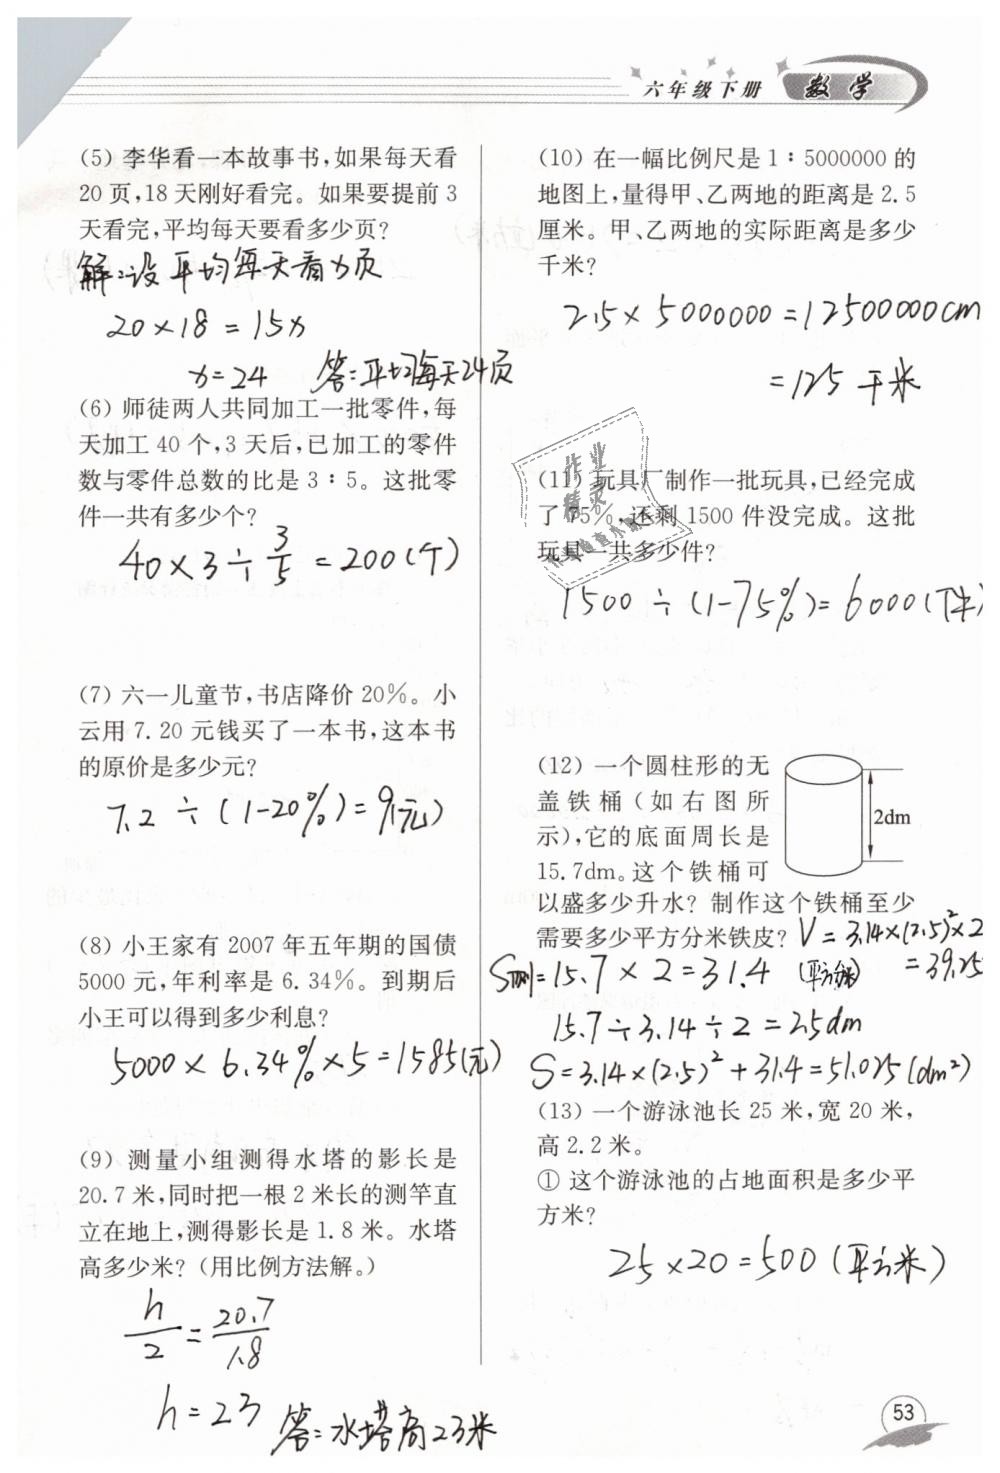 六年级下册 数学
(5) 李华看一本故事书,如果每天看
20 页,18 天刚好看完。如果要提前 3
天看完,平均每天要看多少页?
解:设平均每天看x页
20×18=15x
x=24 答:平均每天24页
(6) 师徒两人共同加工一批零件,每
天加工 40 个,3 天后,已加工的零件
数与零件总数的比是 3∶5。这批零
件一共有多少个?
40×3÷3/5=200(个)
(7) 六一儿童节,书店降价 20%。小
云用 7.20 元钱买了一本书,这本书
的原价是多少元?
7.2÷(1-20%)=9(元)
(8) 小王家有 2007 年五年期的国债
5000 元,年利率是 6.34%。到期后
小王可以得到多少利息?
5000×6.34%×5=1585(元)
(9) 测量小组测得水塔的影长是
20.7 米,同时把一根 2 米长的测竿直
立在地上,测得影长是 1.8 米。水塔
高多少米?(用比例方法解。)
h/2=20.7/1.8
h=23 答:水塔高23米
(10) 在一幅比例尺是 1∶5000000 的
地图上,量得甲、乙两地的距离是 2.5
厘米。甲、乙两地的实际距离是多少
千米?
2.5×5000000=12500000cm
=125千米
作业
精灵
(11) 玩具厂制作一批玩具,已经完成
了 75%,还剩 1500 件没完成。这批
玩具一共多少件?
1500÷(1-75%)=6000(件)
(12) 一个圆柱形的无
盖铁桶(如右图所
示),它的底面周长是
15.7dm。这个铁桶可
以盛多少升水? 制作这个铁桶至少
需要多少平方分米铁皮?
2dm
V=3.14×(2.5)²×2
=39.25
S侧=15.7×2=31.4 (平方分米)
15.7÷3.14÷2=2.5dm
S=3.14×(2.5)²+31.4=51.025(dm²)
(13) 一个游泳池长 25 米,宽 20 米,
高 2.2 米。
① 这个游泳池的占地面积是多少平
方米?
25×20=500(平方米)
53